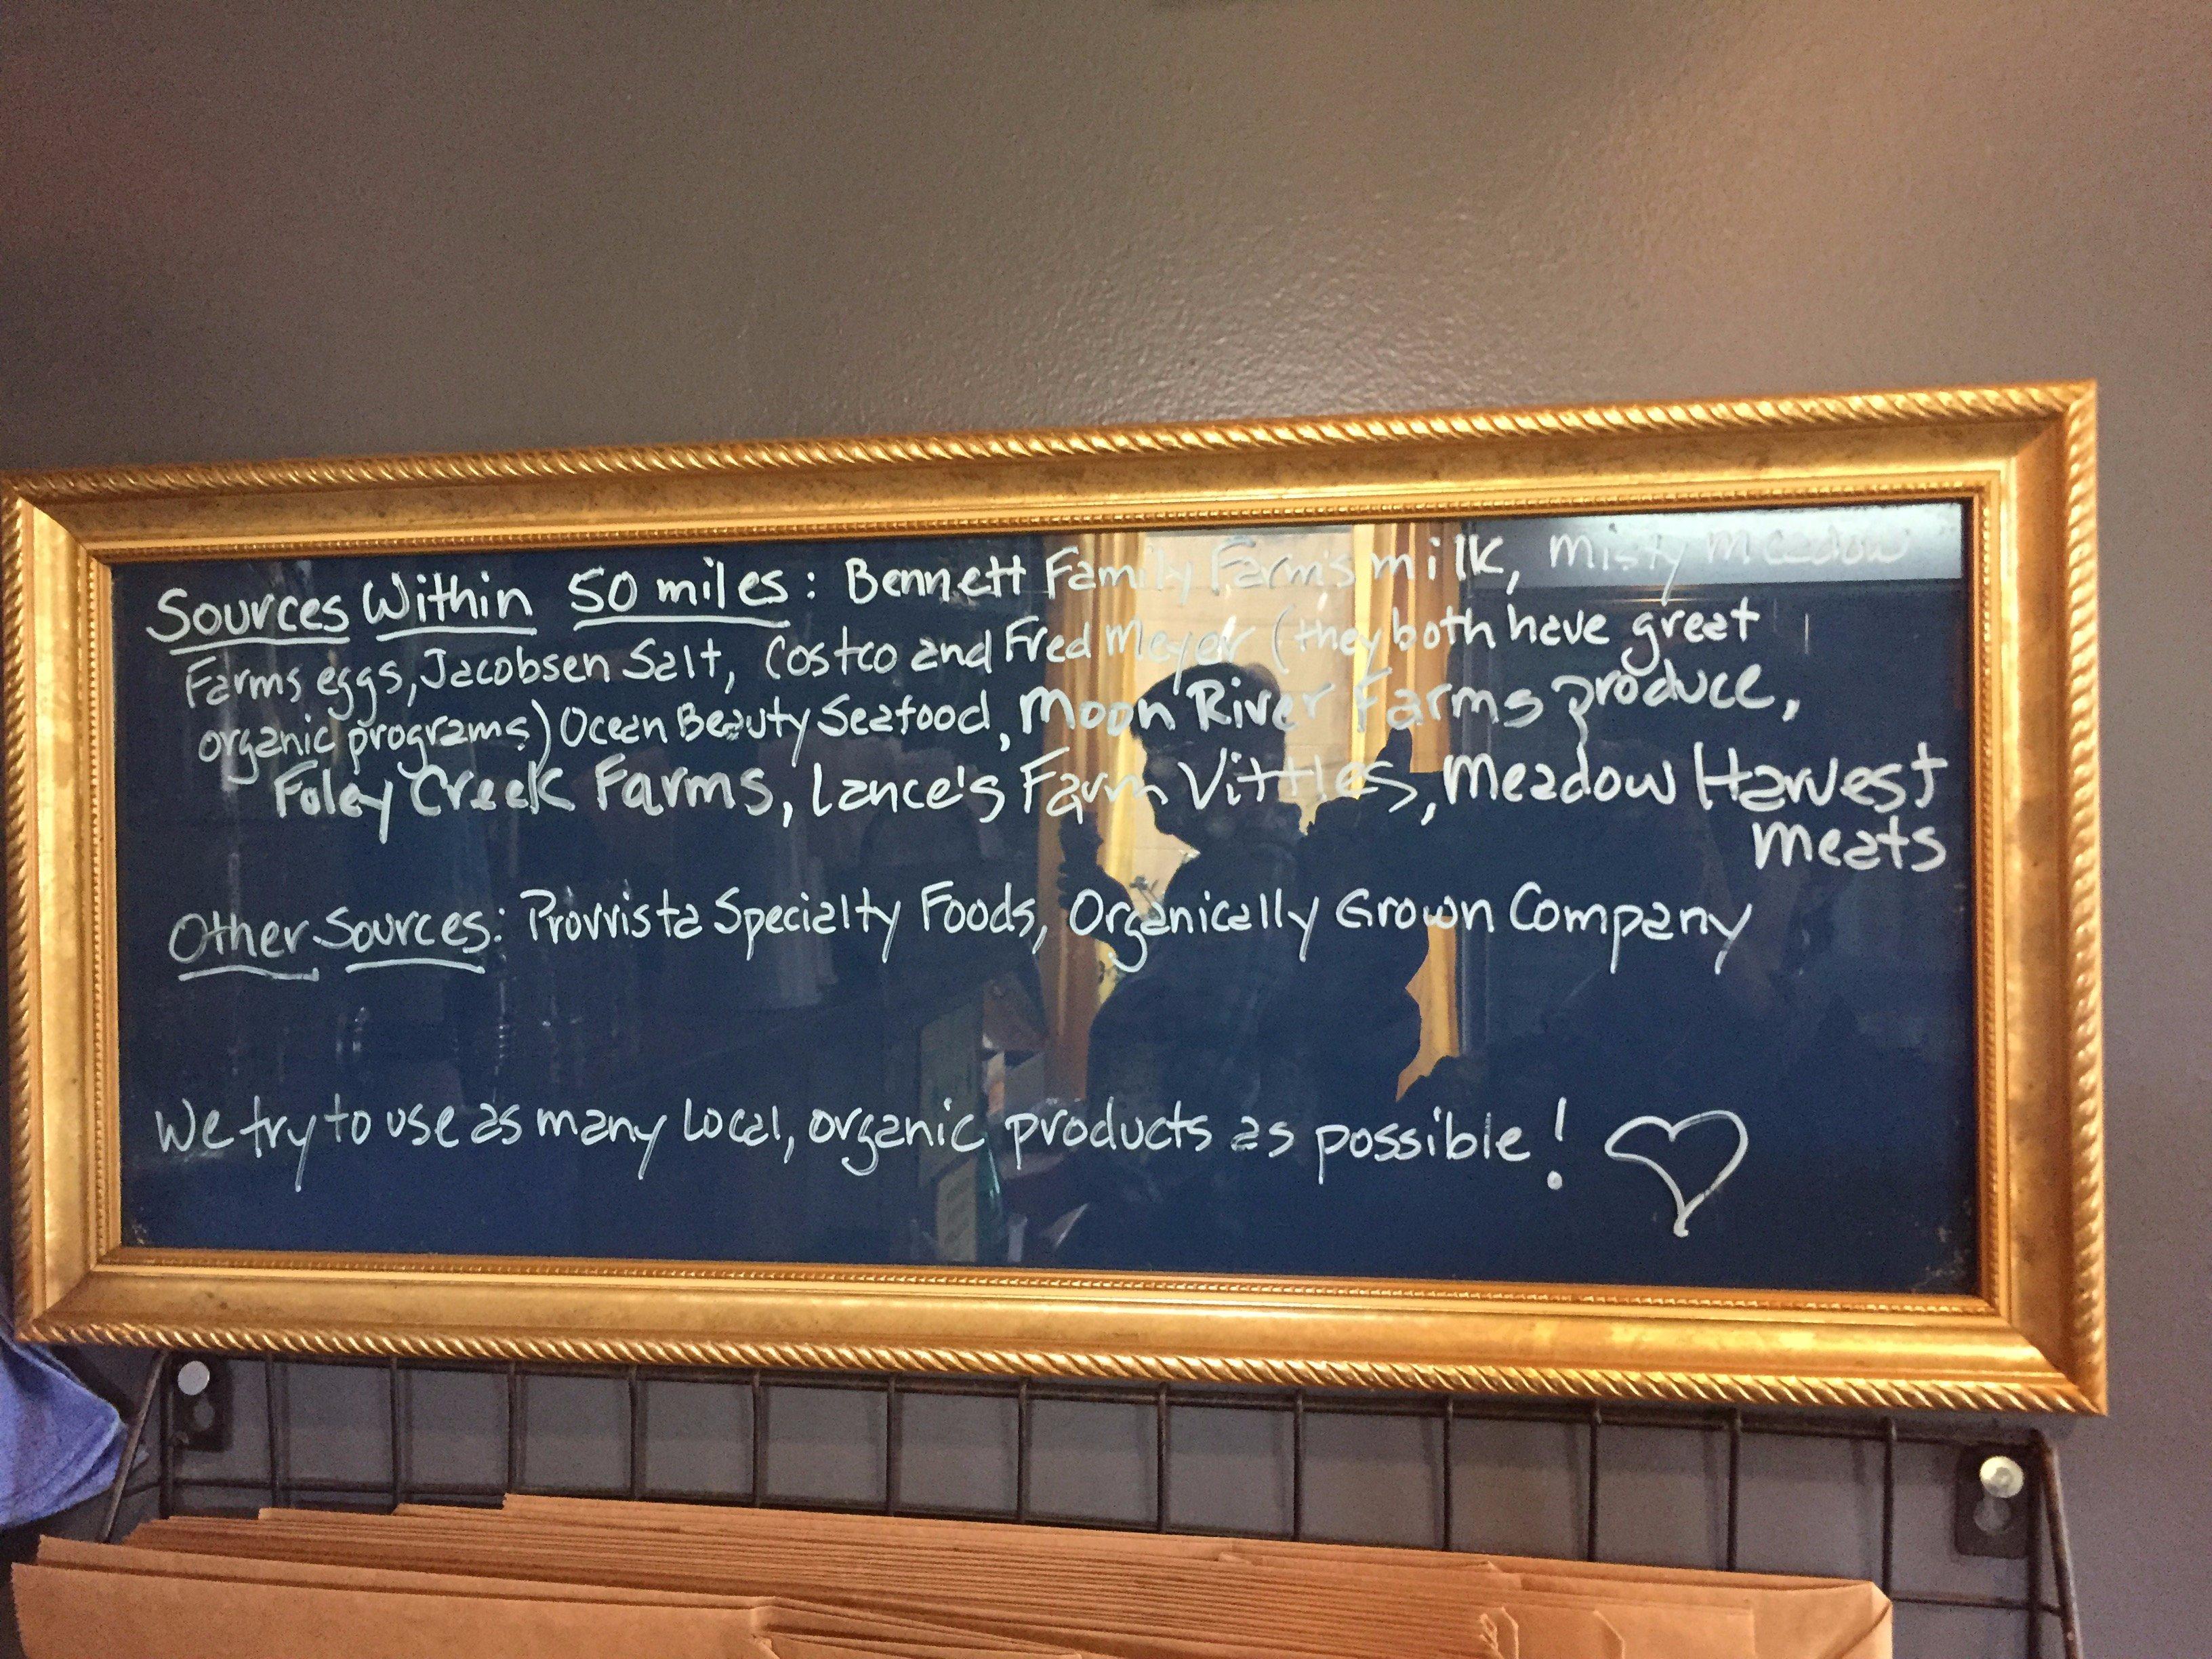 Sources Within 50 miles: Bennett Family Farms milk, Misty Meadow
Farms eggs, Jacobsen Salt, Costco and Fred Meyer (they both have great
organic programs) Ocean Beauty Seafood, Moon River Farms produce,
Foley Creek Farms, Lance's Farm Vittles, Meadow Harvest
meats
Other Sources: Provvista Specialty Foods, Organically Grown Company
We try to use as many local, organic products as possible!